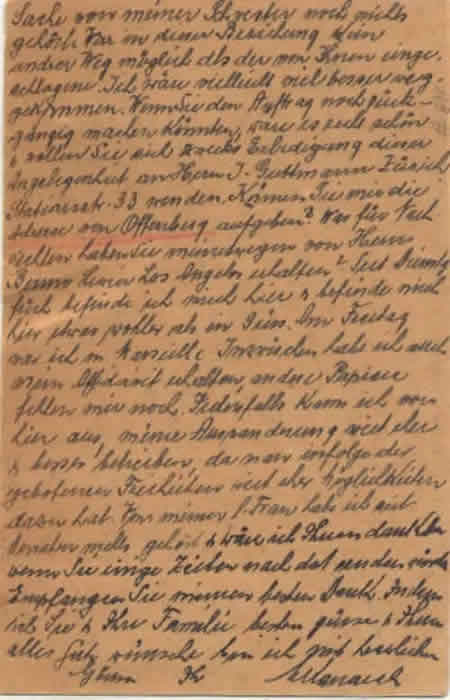 Sache von meiner Schwester noch nichts
gehört. War in dieser Beziehung kein
andrer Weg möglich als der von Ihnen einge-
schlagene. Ich wäre vielleicht viel besser weg-
gekommen. Wenn Sie den Auftrag noch rück-
gängig machen könnten, wäre es recht schön
& wollen Sie sich zwecks Erledigung dieser
Angelegenheit an Herrn J. Guttmann Zürich
33 wenden. Können Sie mir die
Adresse von Offenberg aufgeben? Was für Nach-
richten haben Sie meinetwegen von Herrn
Benno Levi Los Angelos erhalten? Seit Dienstag
früh befinde ich mich hier & befinde mich
hier etwas wohler als in Gurs. Am Freitag
war ich in Marseille. Inzwischen habe ich auch
mein Affidavit erhalten, andere Papiere
fehlen mir noch. Jedenfalls kann ich von
hier aus, meine Auswanderung viel eher
& besser betreiben, da man infolge der
gebotenen Freiheiten viel eher Möglichkeiten
dazu hat. Von meiner l. Frau habe ich seit
nichts gehört & wäre ich Ihnen dankbar
wenn Sie einige Zeilen nach dort senden würden
Empfangen Sie meinen besten Dank. Indem
ich Sie & Ihre Familie bestens grüsse & Ihnen
alles Gute wünsche bin ich mit herzlichen
Ihr